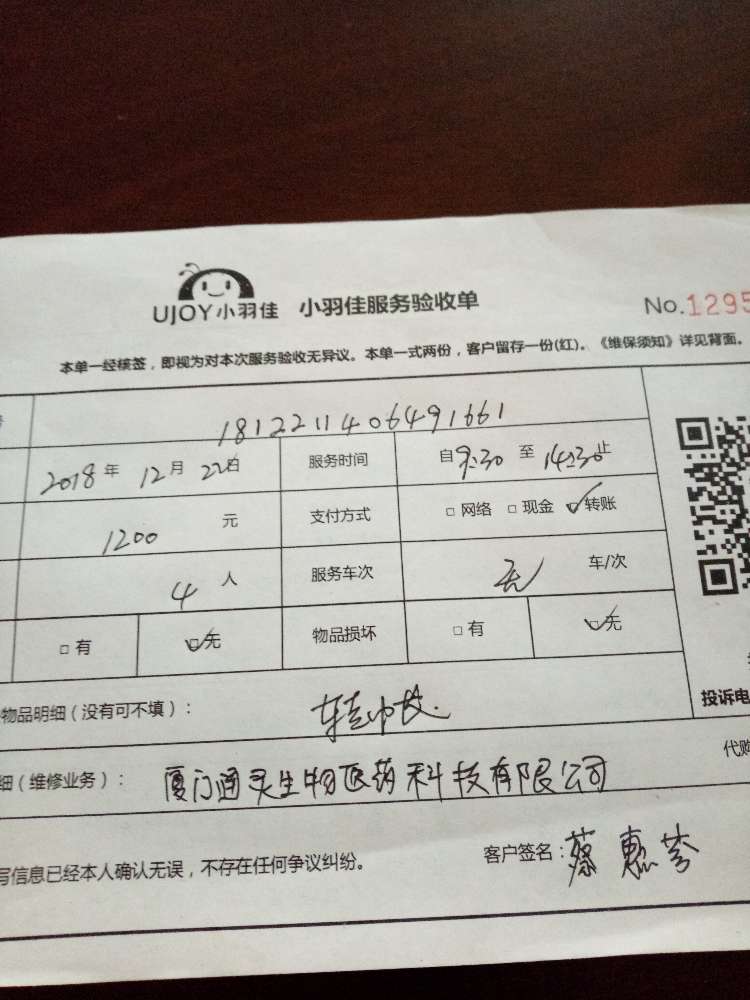 UJOY小羽佳 小羽佳服务验收单 No.1295
本单一经核签，即视为对本次服务验收无异议。本单一式两份，客户留存一份(红)。《维保须知》详见背面。
1812211406491661
2018年 12月 22日 服务时间 自9:30 至 14:30止
1200 元 支付方式 □ 网络 □ 现金 ☑转账
4 人 服务车次 无 车/次
□ 有 ☑无 物品损坏 □ 有 ☑无
投诉电
物品明细（没有可不填）： 转
代购
细（维修业务）： 厦门通灵生物医药科技有限公司
写信息已经本人确认无误，不存在任何争议纠纷。 客户签名：蔡惠芬